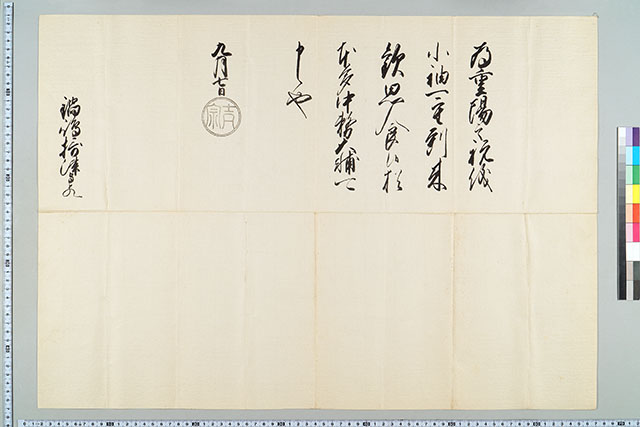 為重陽之祝儀
小袖一重到来
歓思食候猶
本多中務大輔可
申候也
九月七日
鍋嶋摂津守とのへ